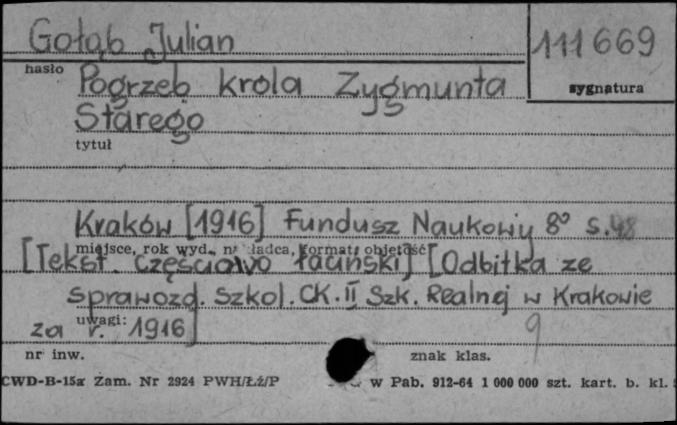 Gołąb Julian
111669
hasło
sygnatura
Pogrzeb króla Zygmunta
Starego
tytuł
Kraków [1916] Fundusz Naukowy 8° s. 48
miejsce, rok wyd., nakładca, format, objętość
[Tekst częściowo łaciński] [Odbitka ze
sprawozd. Szkol. CK. II Szk. Realnej w Krakowie
uwagi:
za r. 1916]
9
nr inw.
znak klas.
CWD-B-15a Zam. Nr 2924 PWH/Łź/P
w Pab. 912-64 1 000 000 szt. kart. b. kl.